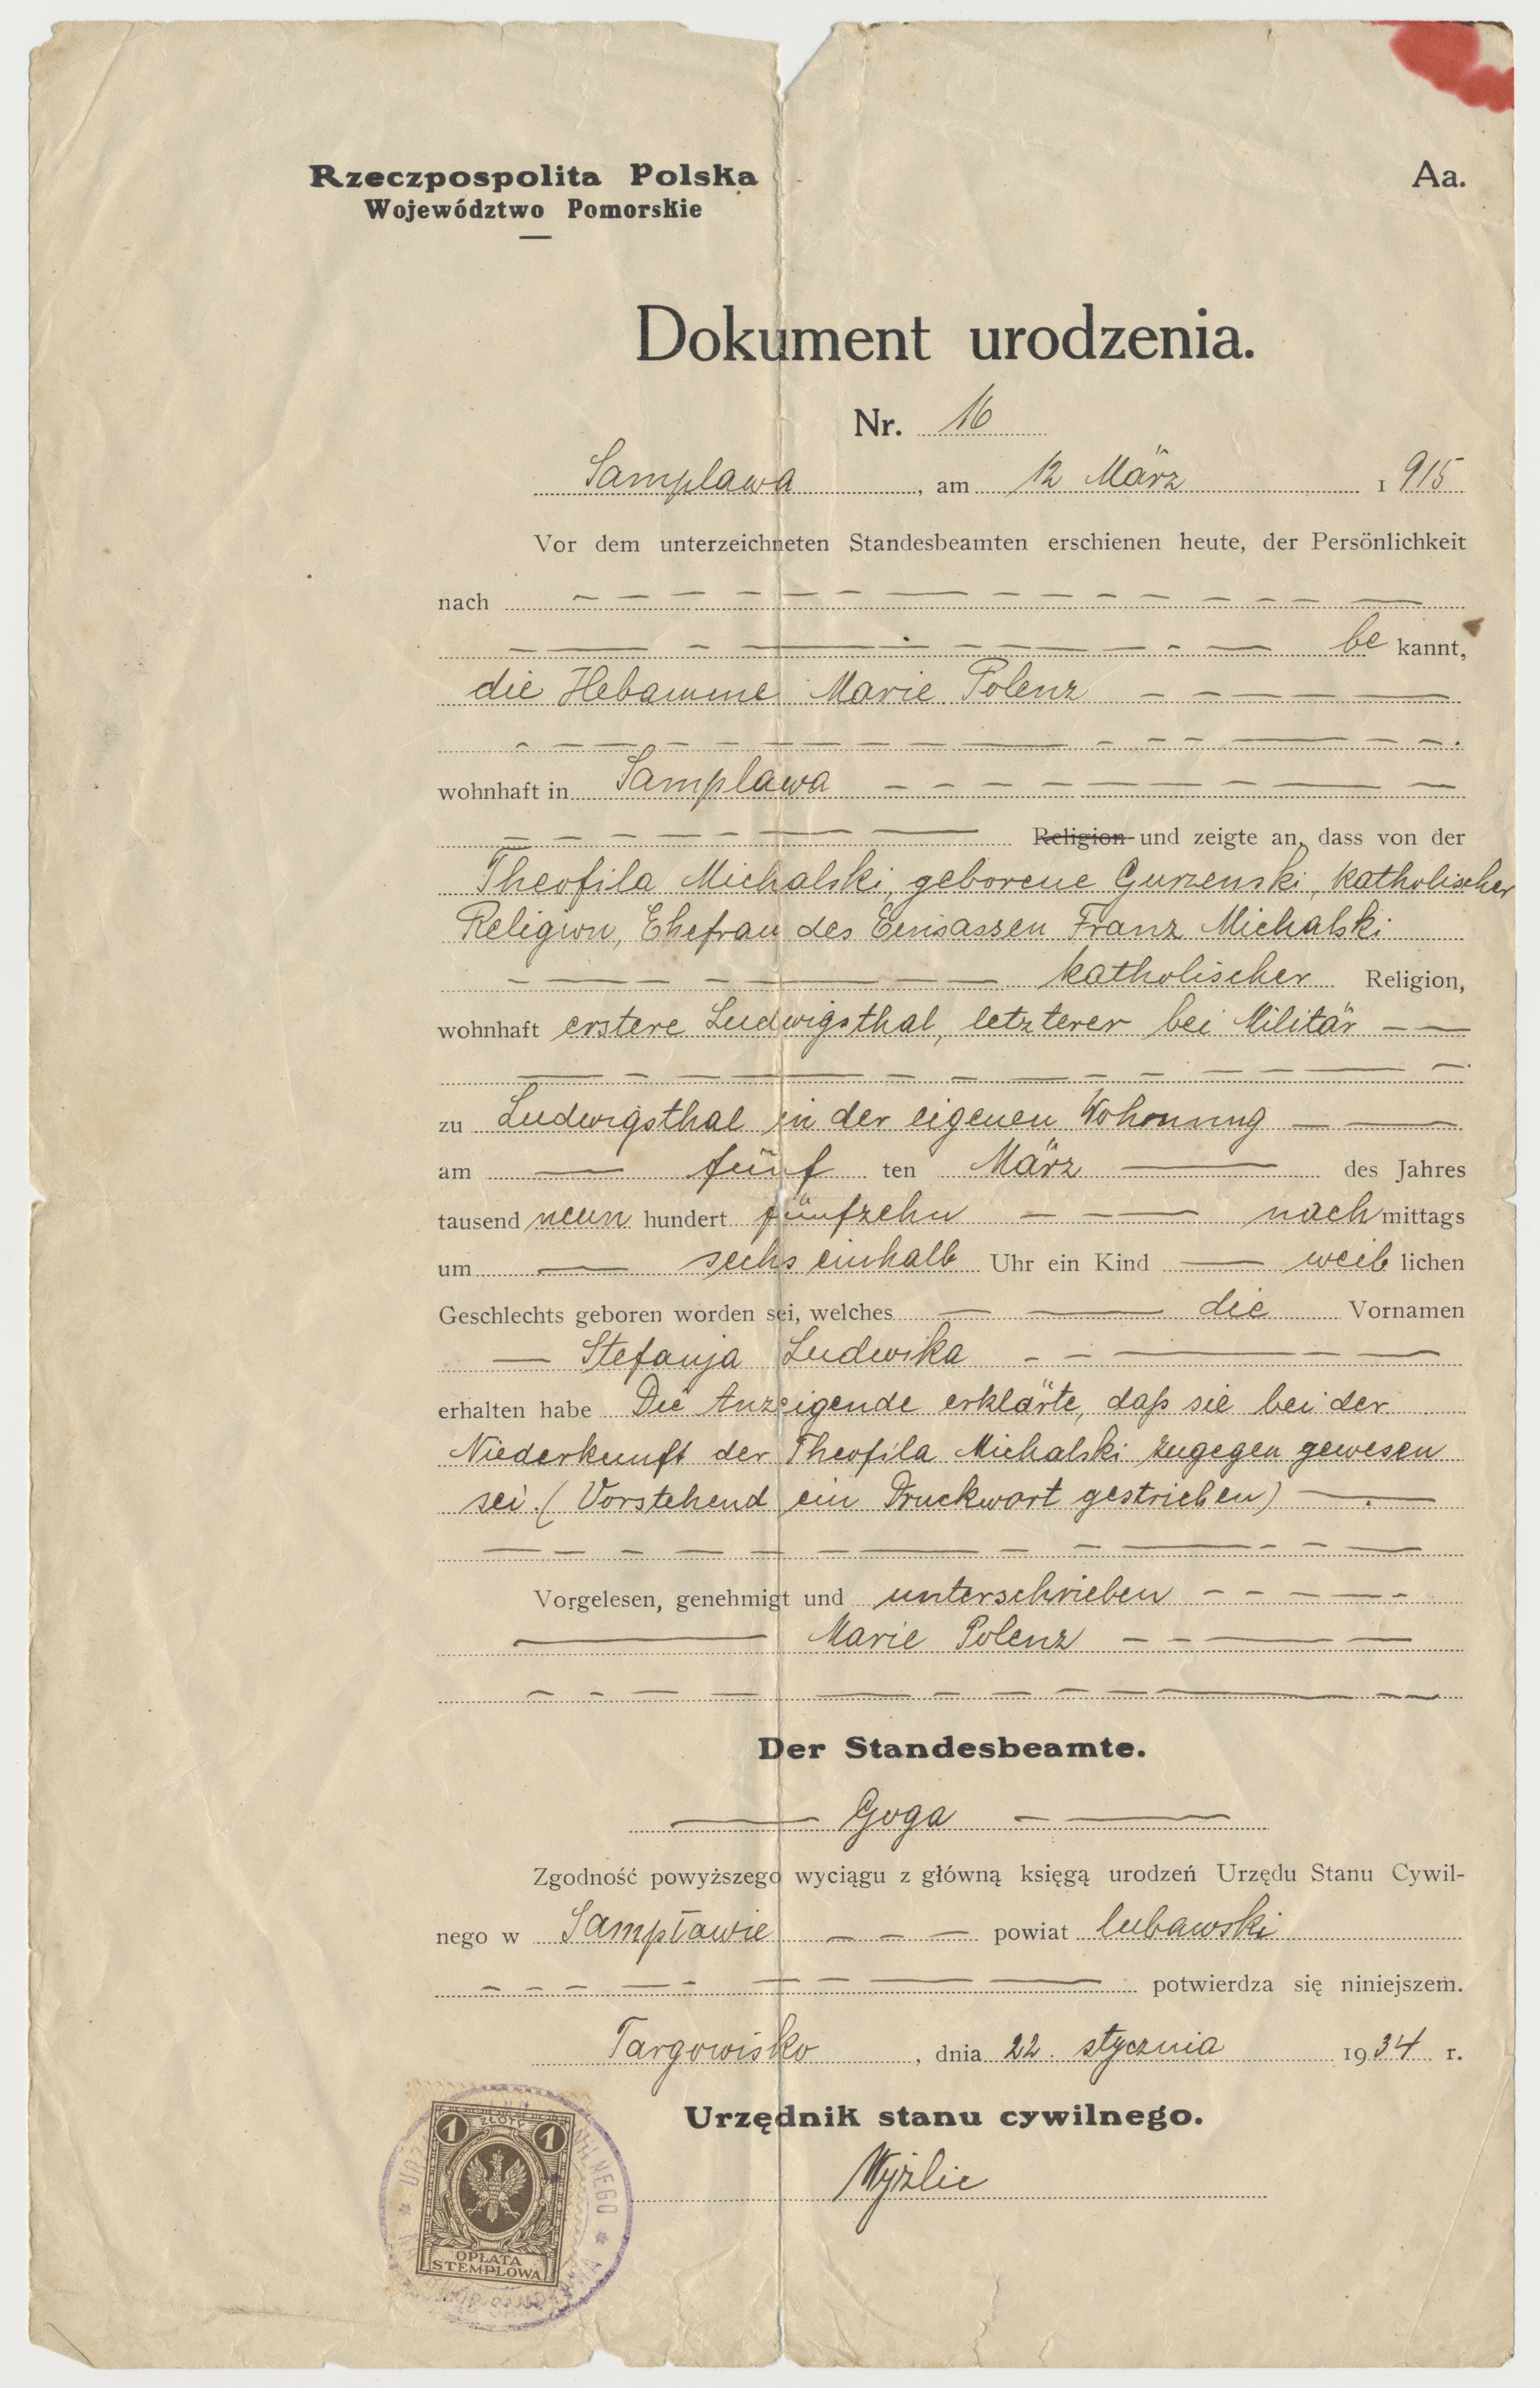 Rzeczpospolita Polska
Województwo Pomorskie
Aa.
Dokument urodzenia.
Nr. 16
Samplawa, am 12 März 1915
Vor dem unterzeichneten Standesbeamten erschienen heute, der Persönlichkeit
nach
be kannt,
die Hebamme Marie Polenz
wohnhaft in Samplawa
Religion und zeigte an, dass von der
Theofila Michalski, geborene Gurzenski, katholischer
Religion, Ehefrau des Einsassen Franz Michalski
katholischer Religion,
wohnhaft erstere Ludwigsthal, letzterer bei Militär
zu Ludwigsthal in der eigenen Wohnung
am fünf ten März des Jahres
tausend neun hundert fünfzehn nach mittags
um sechs einhalb Uhr ein Kind weib lichen
Geschlechts geboren worden sei, welches die Vornamen
Stefanja Ludwika
erhalten habe Die Anzeigende erklärte, daß sie bei der
Niederkunft der Theofila Michalski zugegen gewesen
sei. (Vorstehend ein Druckwort gestrichen)
Vorgelesen, genehmigt und unterschrieben
Marie Polenz
Der Standesbeamte.
Goga
Zgodność powyższego wyciągu z główną księgą urodzeń Urzędu Stanu Cywil-
nego w Sampławie powiat lubawski
potwierdza się niniejszem.
Targowisko, dnia 22. stycznia 1934 r.
Urzędnik stanu cywilnego.
Wyżlic
1 ZŁOTY 1
OPŁATA
STEMPLOWA